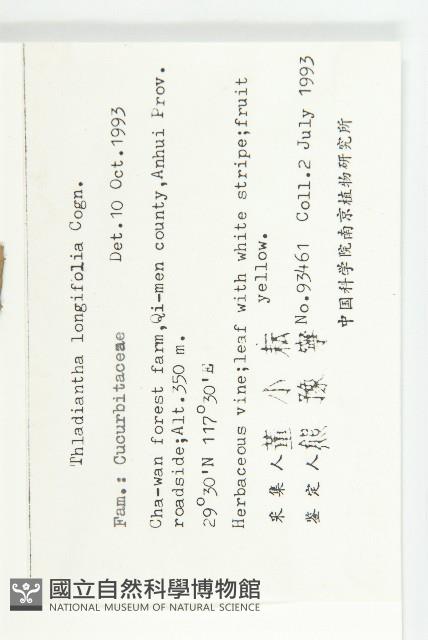 Thladiantha longifolia Cogn.
Fam.: Cucurbitaceae Det.10 Oct.1993
Cha-wan forest farm,Qi-men county,Anhui Prov.
roadside;Alt.350 m.
29°30'N 117°30'E
Herbaceous vine;leaf with white stripe;fruit
yellow.
采集人 董小
鉴定人 熊豫宁 No.93461 Coll.2 July 1993
中国科学院南京植物研究所
國立自然科學博物館
NATIONAL MUSEUM OF NATURAL SCIENCE